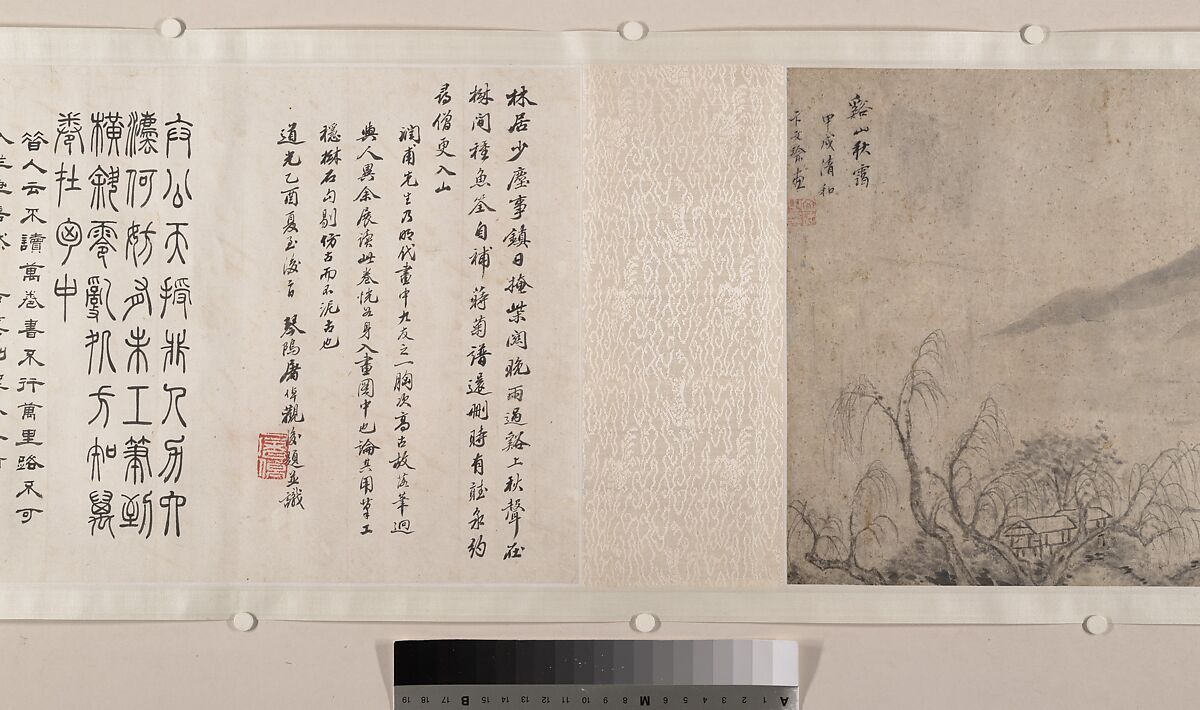 谿山秋靄
甲戌清和
卞文瑜畫
林居少塵事鎮日掩柴関晚雨過谿上秋聲在
樹間種魚筌自補蒔菊譜還刪時有
尋僧更入山
潤甫先生乃明代畫中九友之一胸次高古故落筆迥
與人異余展讀此卷恍如身入畫圖中也論其用筆工
穩樹石勾剔仿古而不泥古也
道光乙酉夏五後 琴隖屠倬觀後題並識
公天授非人
濃何妨未工筆到
橫斜零亂外方知萬
卷在胸中
昔人云不讀萬卷書不行萬里路不可
A 1 2 3 4 5 6 M 8 9 10 11 12 13 14 15 B 17 18 19